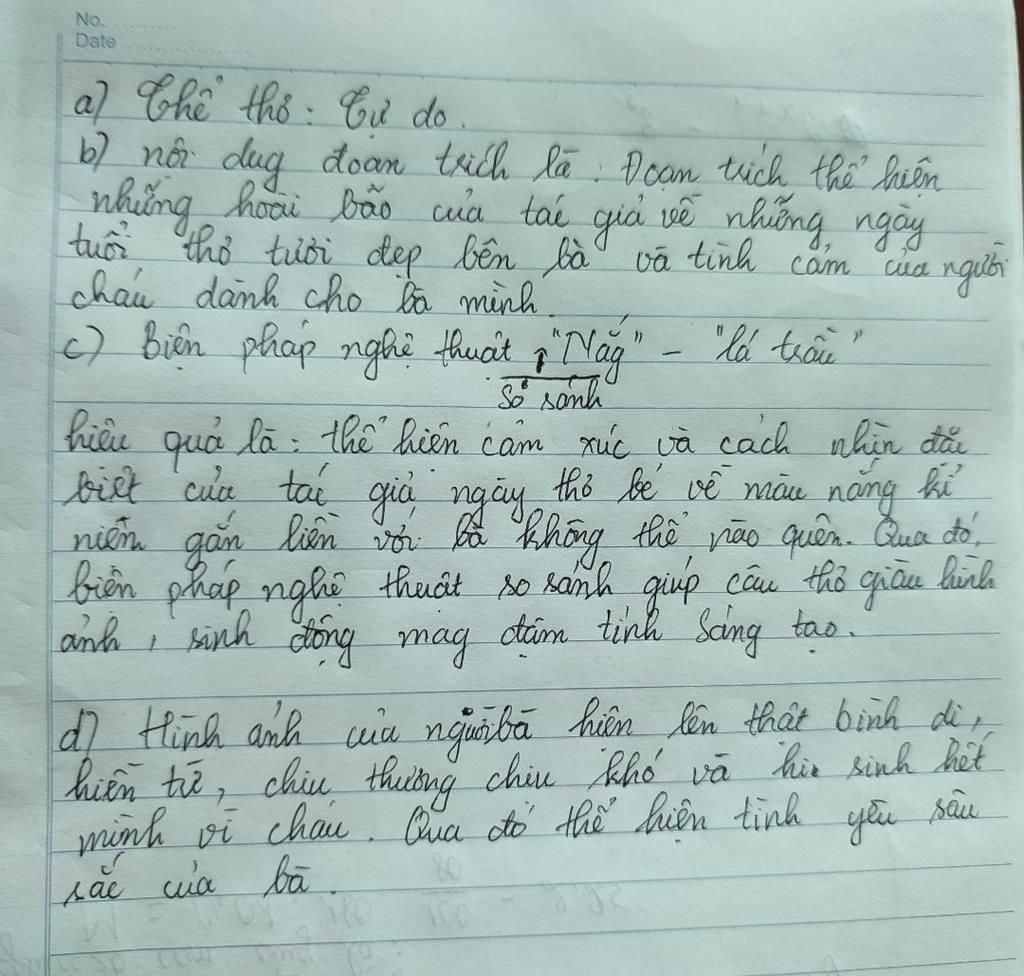 No. ............
Date ......................
a) Thể thơ: Tự do.
b) nội dug đoạn trích là: Đoạn trích thể hiện
những hoài bão của tác giả về những ngày
tuổi thơ tươi đẹp bên bà và tình cảm của người
cháu dành cho bà mình.
c) Biện pháp nghệ thuật "Nắg" - "lá trầu"
so sánh
hiệu quả là: thể hiện cảm xúc và cách nhìn đặc
biệt của tác giả ngày thơ bé về màu nắng kỉ
niệm gắn liền với bà không thể nào quên. Qua đó,
biện pháp nghệ thuật so sánh giúp câu thơ giàu hình
ảnh, sinh động mag đậm tính sáng tạo.
d) Hình ảnh của người bà hiện lên thật bình dị,
hiền từ, chịu thương chịu khó và hi sinh hết
mình vì cháu. Qua đó thể hiện tình yêu sâu
sắc của bà.